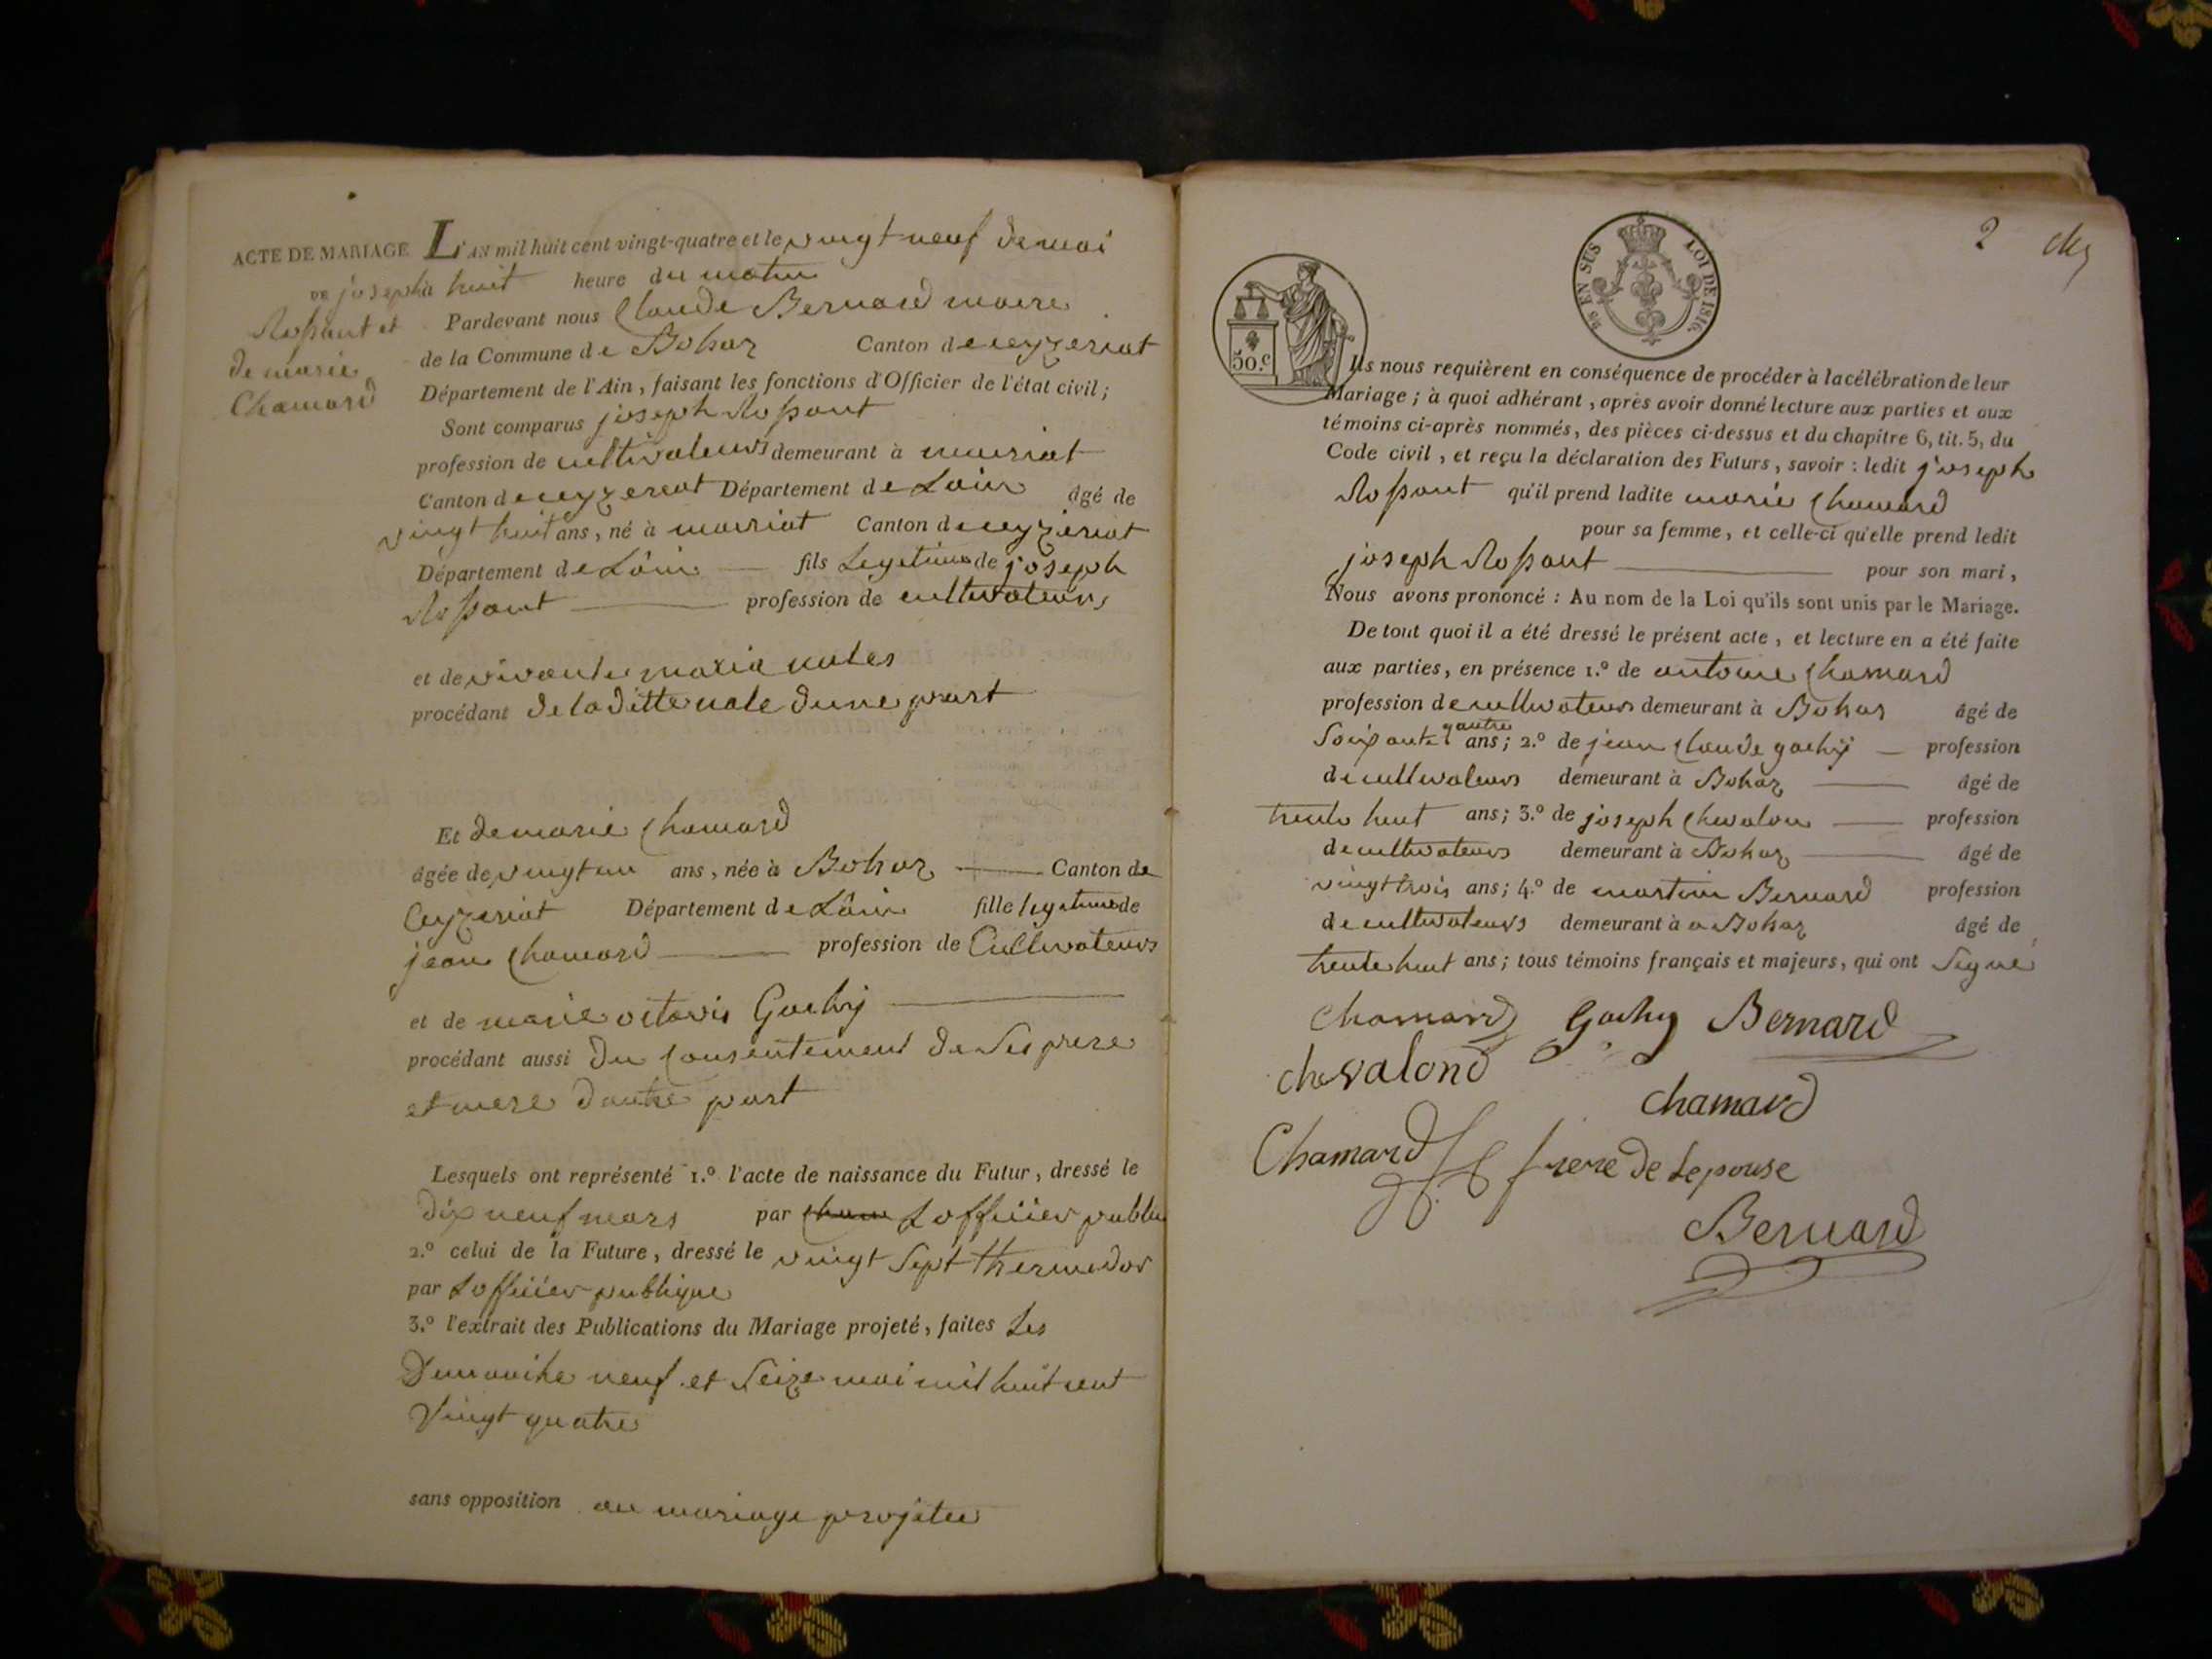 ACTE DE MARIAGE
de joseph
Rossant et
de marie
Chamard
L'AN mil huit cent vingt-quatre et le vingt neuf de mai
à huit heure du matin
Pardevant nous Claude Bernard maire
de la Commune de Bohaz Canton de ceyzeriat
Département de l'Ain, faisant les fonctions d'Officier de l'état civil;
Sont comparus joseph Rossant
profession de cultivateurs demeurant à
Canton de ceyzeriat Département de Lain âgé de
vingt huit ans, né à Canton de ceyzeriat
Département de Lain fils Legetime de joseph
Rossant profession de cultivateurs
et de vivante maria
procédant de laditte dune part
Et de marie Chamard
âgée de vingt un ans, née à Bohaz Canton de
Ceyzeriat Département de Lain fille legetime de
jean Chamard profession de Cultivateurs
et de marie octavis Gachy
procédant aussi du Consentement de Ses pere
et mere dautre part
Lesquels ont représenté 1.º l'acte de naissance du Futur, dressé le
dix neuf mars par Loffiiier public
2.º celui de la Future, dressé le vingt Sept thermedor
par Loffiiier publique
3.º l'extrait des Publications du Mariage projeté, faites Les
Dimanche neuf et Seize mai mil huit cent
Vingt quatre
sans opposition au mariage projetee
2
50.c
EN SUS
LOI DE 1816.
Ils nous requièrent en conséquence de procéder à la célébration de leur
Mariage; à quoi adhérant, après avoir donné lecture aux parties et aux
témoins ci-après nommés, des pièces ci-dessus et du chapitre 6, tit. 5, du
Code civil, et reçu la déclaration des Futurs, savoir: ledit joseph
Rossant qu'il prend ladite marie Chamard
pour sa femme, et celle-ci qu'elle prend ledit
joseph Rossant pour son mari,
Nous avons prononcé: Au nom de la Loi qu'ils sont unis par le Mariage.
De tout quoi il a été dressé le présent acte, et lecture en a été faite
aux parties, en présence 1.º de antoine Chamard
profession de cultivateurs demeurant à Bohaz âgé de
Soixante quatre ans; 2.º de jean Claude gachy profession
de cultivateurs demeurant à Bohaz âgé de
trente huit ans; 3.º de joseph Chevalon profession
de cultivateurs demeurant à Bohaz âgé de
vingt trois ans; 4.º de martin Bernard profession
de cultivateurs demeurant à a Bohaz âgé de
trente huit ans; tous témoins français et majeurs, qui ont Signé
Chamard Gachy Bernard
chevalond
chamard
Chamard frere de Lepouse
Bernard